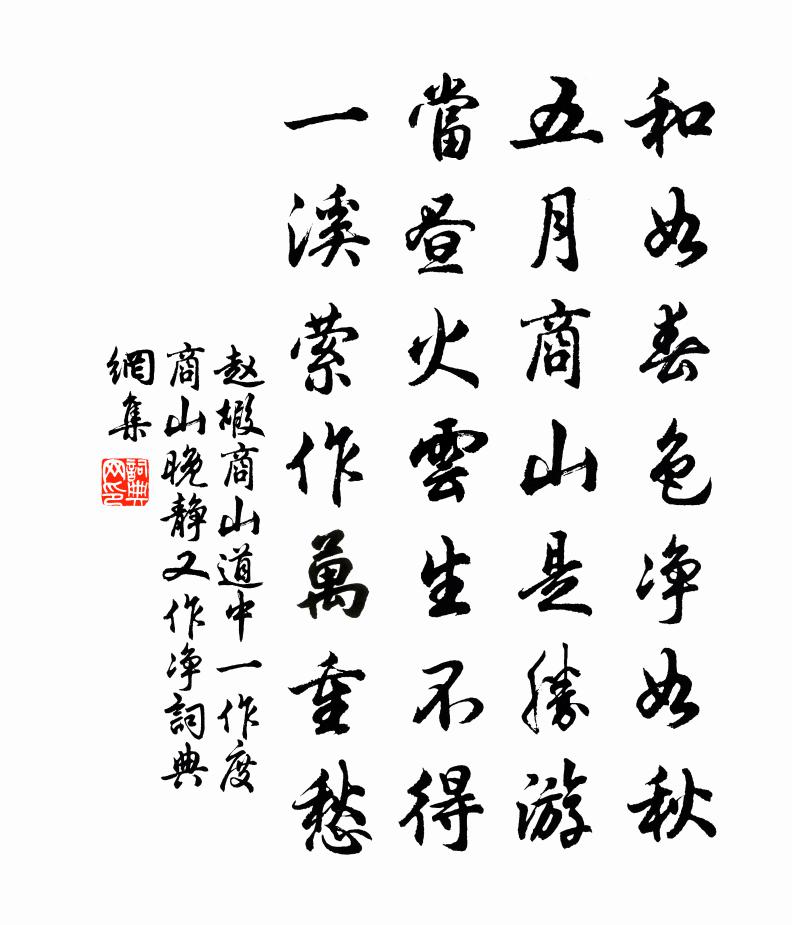 和如春色净如秋
五月商山是勝游
當晝火雲生不得
一溪萦作萬重愁
赵嘏商山道中一作度
商山晚静又作净詞典
網集
詞典
网印